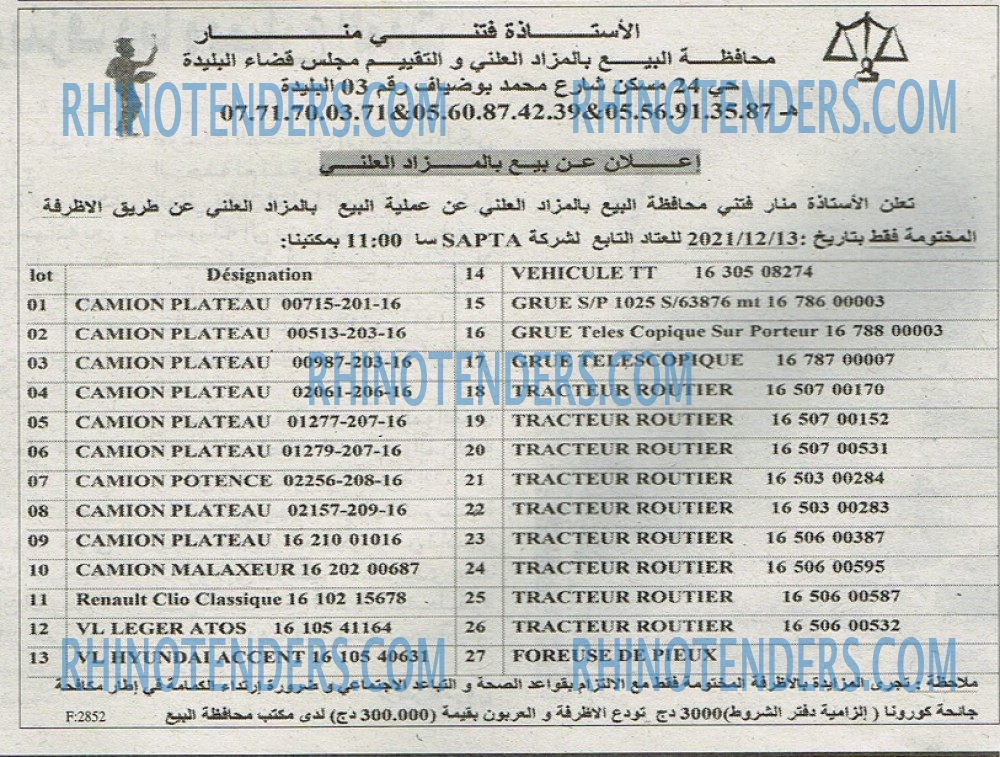 الأستـــاذة فتنـــي منـــار
محافظـــة البيـــع بالمـزاد العلني و التقييـم مجلس قضاء البليدة
حي 24 مسكن شارع محمد بوضياف رقم 03 البليدة
هـ 07.71.70.03.71&05.60.87.42.39&05.56.91.35.87
RHINOTENDERS.COM RHINOTENDERS.COM
إعـــلان عـن بيـع بالمـــزاد العلنـــي
تعلن الأستاذة منار فتني محافظة البيع بالمزاد العلني عن عملية البيع بالمزاد العلني عن طريق الاظرفة
المختومة فقط بتاريخ :2021/12/13 للعتاد التابع لشركة SAPTA سا 11:00 بمكتبنا:
lot Désignation
01 CAMION PLATEAU 00715-201-16
02 CAMION PLATEAU 00513-203-16
03 CAMION PLATEAU 00987-203-16
04 CAMION PLATEAU 02061-206-16
05 CAMION PLATEAU 01277-207-16
06 CAMION PLATEAU 01279-207-16
07 CAMION POTENCE 02256-208-16
08 CAMION PLATEAU 02157-209-16
09 CAMION PLATEAU 16 210 01016
10 CAMION MALAXEUR 16 202 00687
11 Renault Clio Classique 16 102 15678
12 VL LEGER ATOS 16 105 41164
13 VL HYUNDAI ACCENT 16 105 40631
14 VEHICULE TT 16 305 08274
15 GRUE S/P 1025 S/63876 mt 16 786 00003
16 GRUE Teles Copique Sur Porteur 16 788 00003
17 GRUE TELESCOPIQUE 16 787 00007
18 TRACTEUR ROUTIER 16 507 00170
19 TRACTEUR ROUTIER 16 507 00152
20 TRACTEUR ROUTIER 16 507 00531
21 TRACTEUR ROUTIER 16 503 00284
22 TRACTEUR ROUTIER 16 503 00283
23 TRACTEUR ROUTIER 16 506 00387
24 TRACTEUR ROUTIER 16 506 00595
25 TRACTEUR ROUTIER 16 506 00587
26 TRACTEUR ROUTIER 16 506 00532
27 FOREUSE DE PIEUX
RHINOTENDERS.COM
RHINOTENDERS.COM RHINOTENDERS.COM
ملاحظة : تجرى المزايدة بالأظرفة المختومة فقط مع الالتزام بقواعد الصحة و التباعد الاجتماعي و ضرورة إرتداء الكمامة في إطار مكافحة
جائحة كورونا ( إلزامية دفتر الشروط)3000 دج تودع الاظرفة و العربون بقيمة (300.000 دج) لدى مكتب محافظة البيع
F:2852